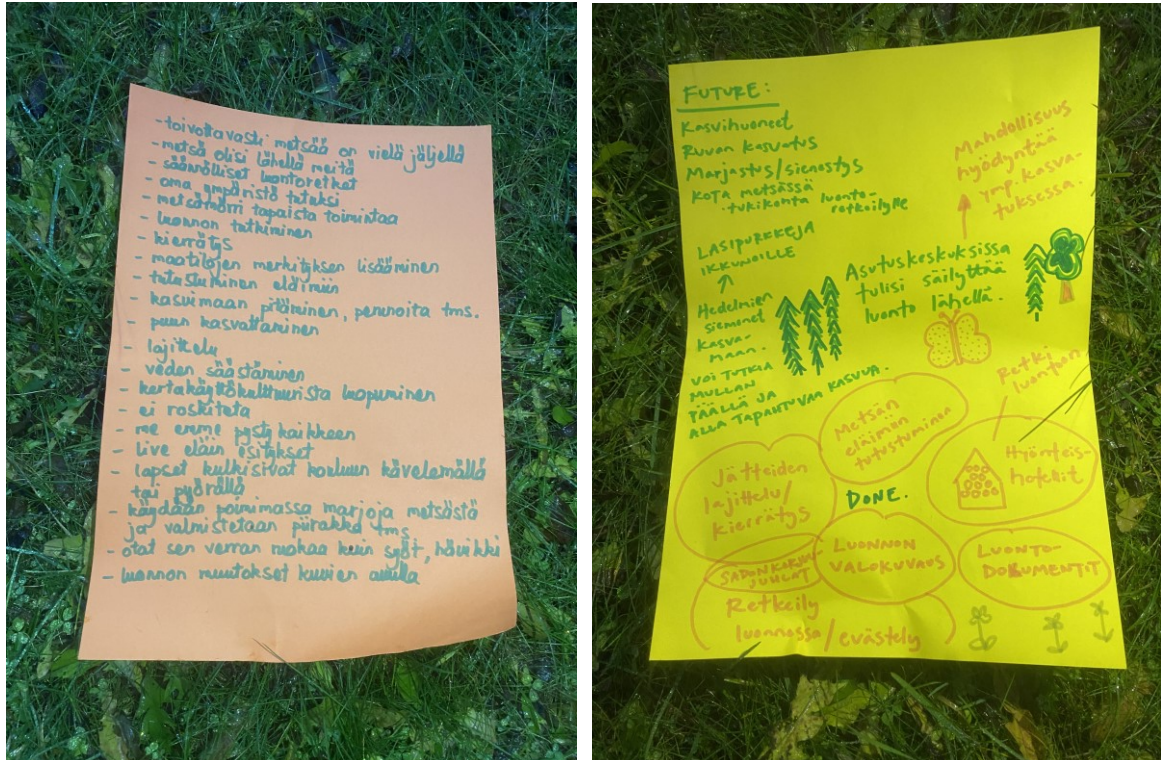 - toivottavasti metsää on vielä jäljellä
- metsä olisi lähellä meitä
- säännölliset luontoretket
- oma ympäristö tutuksi
- metsämörri tapaista toimintaa
- luonnon tutkiminen
- kierrätys
- maatilojen merkityksen lisääminen
- tutustuminen eläimiin
- kasvimaan pitäminen, perunoita tms.
- puun kasvattaminen
- lajittelu
- veden säästäminen
- kertakäyttökulttuurista luopuminen
- ei roskiteta
- me emme pysty kaikkeen
- live eläin esitykset
- lapset kulkisivat kouluun kävelemällä
tai pyörällä
- käydään poimimassa marjoja metsästä
ja valmistetaan piirakka tms.
- otat sen verran ruokaa kuin syöt, hävikki
- luonnon muutokset kuvien avulla
FUTURE:
Kasvihuoneet
Ruuan kasvatus
Marjastus/sienestys
KOTA METSÄSSÄ
-tukikohta luonto-
retkeilylle
LASIPURKKEJA
IKKUNOILLE
Hedelmien
siemenet
kasva-
maan.
VOI TUTKIA
MULLAN
PÄÄLLÄ JA
ALLA TAPAHTUVAA KASVUA.
Mahdollisuus
hyödyntää
ymp.kasva-
tuksessa.
Asutuskeskuksissa
tulisi säilyttää
luonto lähellä.
Retki
luontoon
Metsän
eläimiin
tutustuminen
Hyönteis-
hotellit
Jätteiden
lajittelu/
kierrätys
DONE.
SADONKORJUU-
JUHLAT
LUONNON
VALOKUVAUS
LUONTO-
DOKUMENTIT
Retkeily
luonnossa/evästely